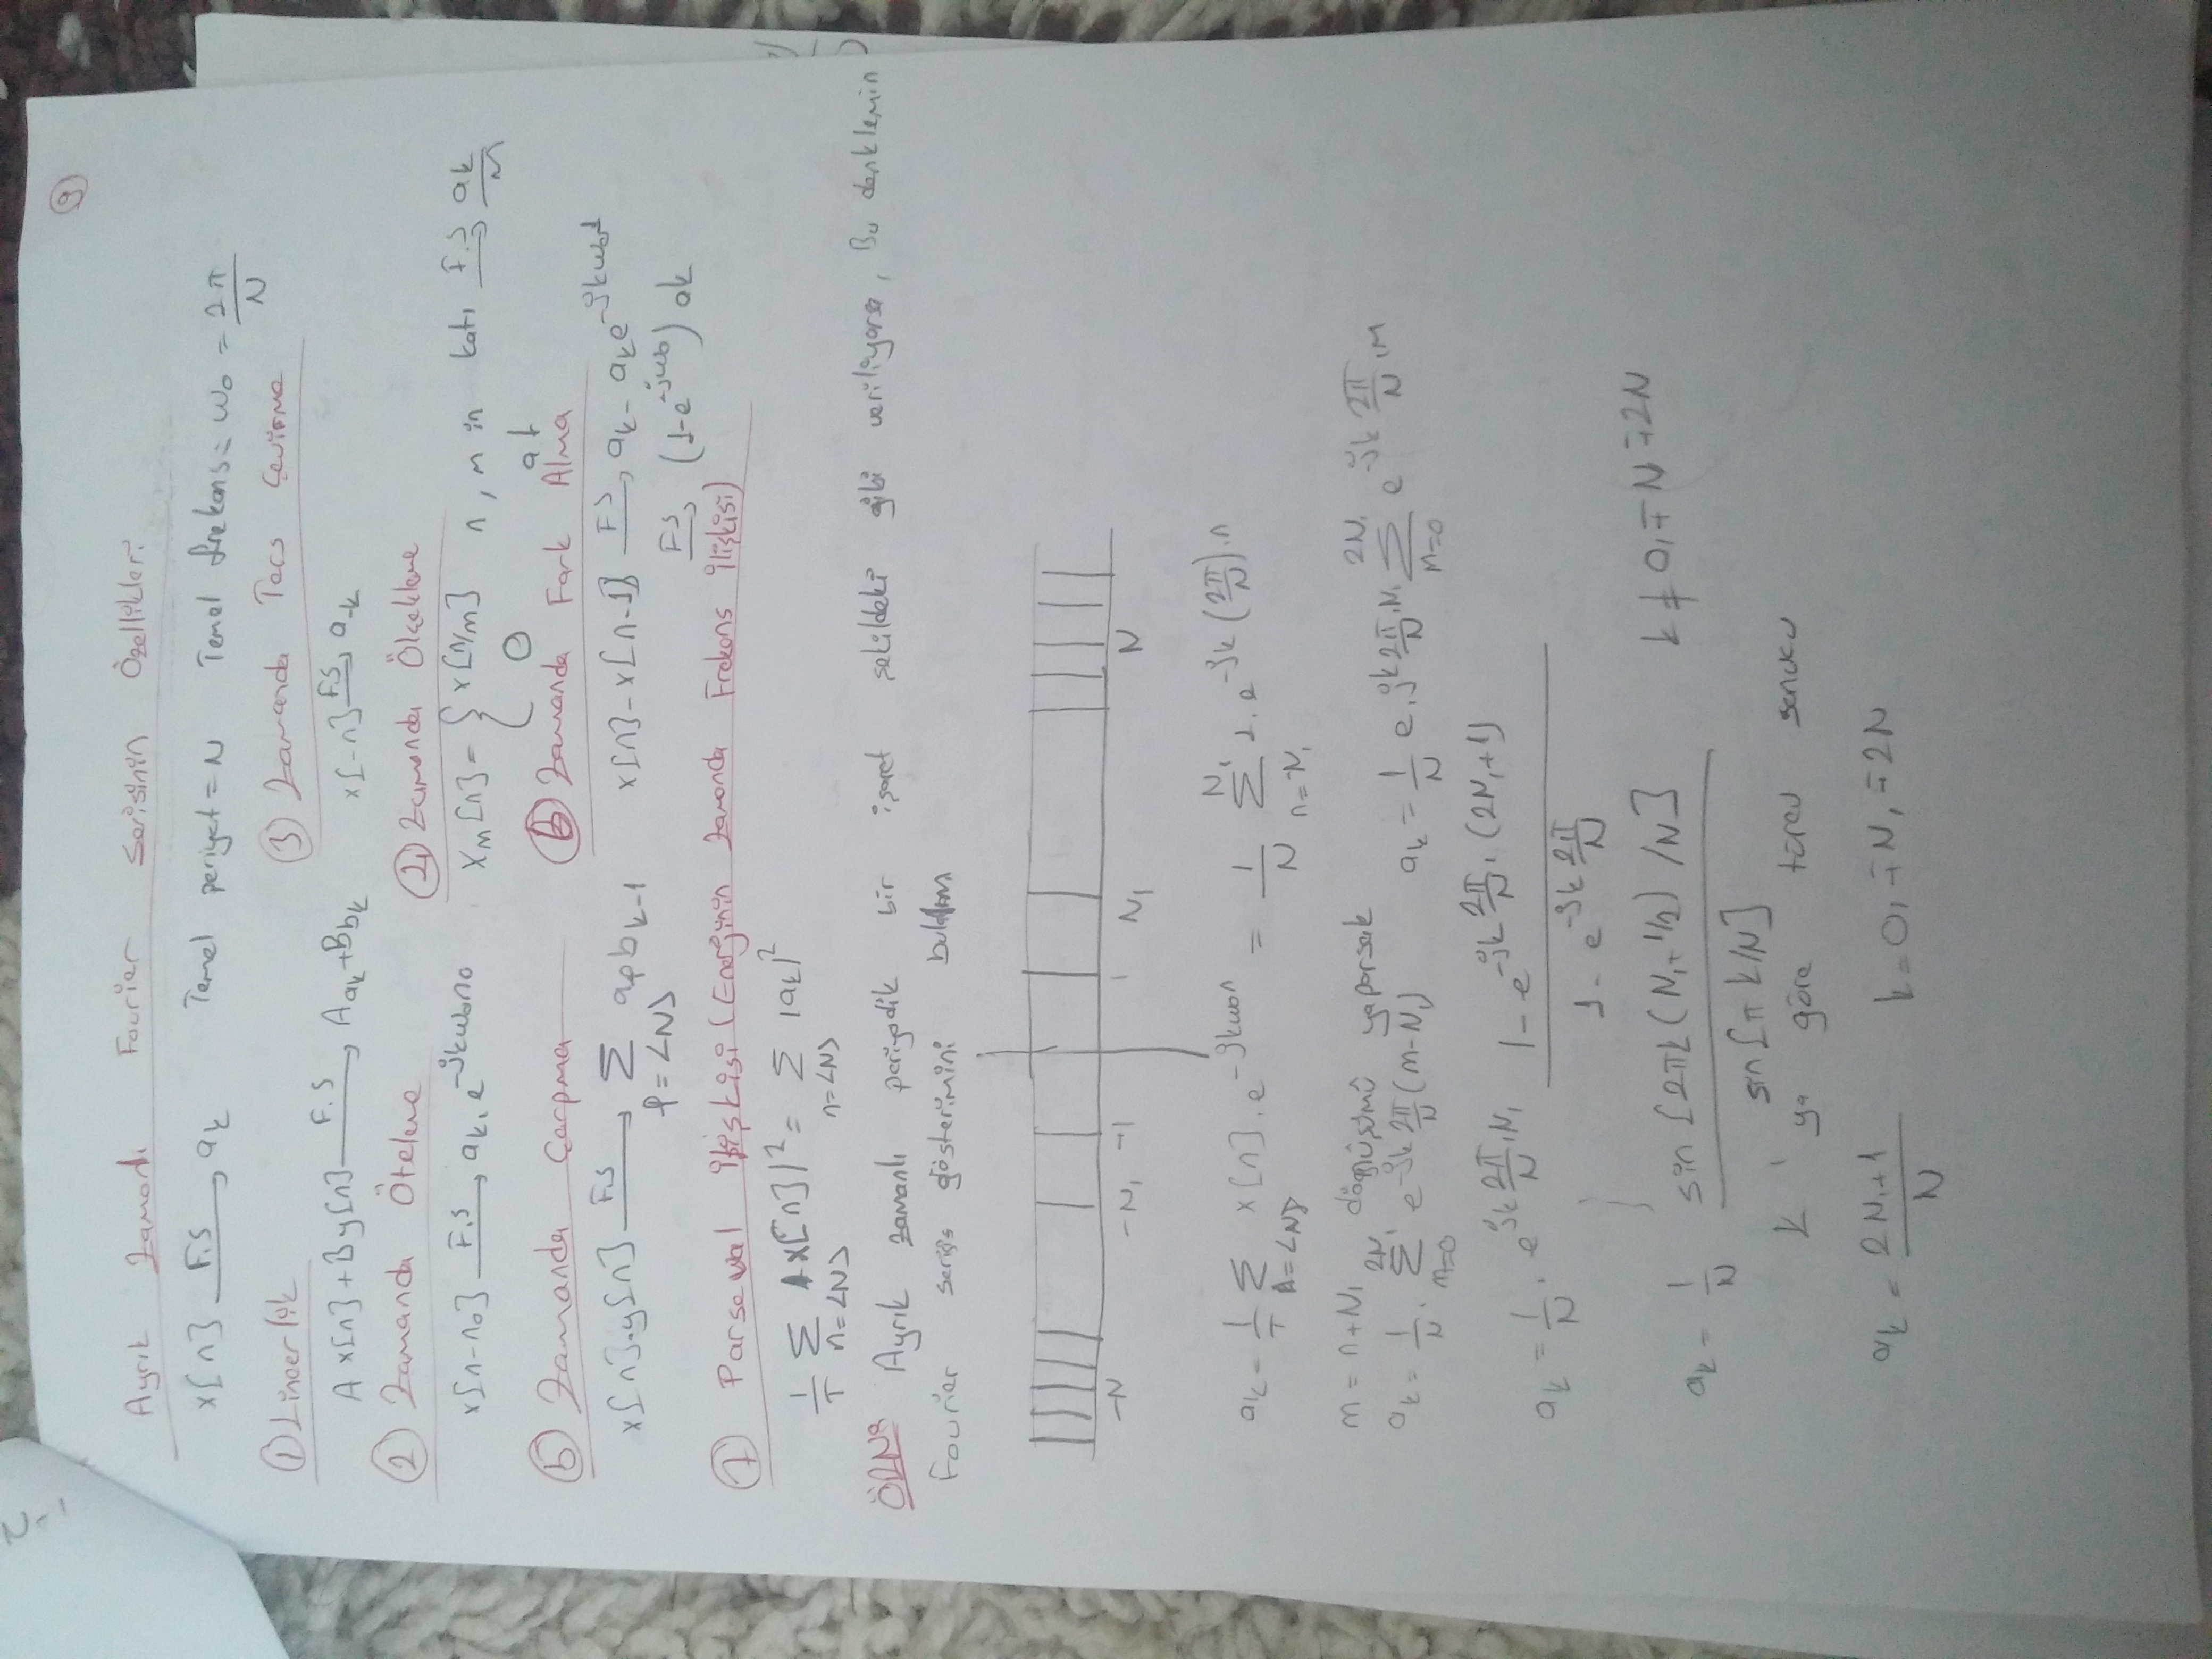 9
Ayrık Zamanlı Fourier Serisinin Özellikleri
x[n] F.S → ak Temel periyot = N Temel frekans = ω0 = 2π/N
① Lineerlik ③ Zamanda Ters Çevirme
A x[n] + B y[n] F.S → A ak + B bk x[-n] F.S → a-k
② Zamanda Öteleme ②, Zamanda Ölçekleme
x[n-n0] F.S → ak, e^-jkω0n0 Xm[n] = { x[n/m] n, m in katı F.S → ak/m
0
⑤ Zamanda Çarpma ⑥ Zamanda Fark Alma
x[n].y[n] F.S → Σ p=<N> ap bk-1 x[n] - x[n-1] F.S → ak - ak e^-jkω0
F.S → (1-e^-jkω0) ak
⑦ Parseval İlişkisi (Enerjinin Zamanda Frekans İlişkisi)
1/T Σ n=<N> |x[n]|² = Σ n=<N> |ak|²
ÖRN: Ayrık zamanlı periyodik bir işaret şekildeki gibi veriliyorsa, Bu denklemin
Fourier serisi gösterimini bulalım
-N -N1 -1 1 N1 N
ak = 1/T Σ n=<N> x[n] . e^-jkω0n = 1/N Σ n=-N1 N1 1. e^-jk(2π/N).n
m = n+N1 dönüşümü yaparsak
ak = 1/N . Σ m=0 2N1 e^-jk 2π/N (m-N1) ak = 1/N e^jk 2π/N .N1 Σ m=0 2N1 e^-jk 2π/N .m
ak = 1/N . e^jk 2π/N .N1 1 - e^-jk 2π/N . (2N1+1) / 1 - e^-jk 2π/N
ak = 1/N sin[2πk(N1+1/2)/N] / sin[πk/N] k ≠ 0, ∓N ∓2N
k 'ya göre türev sonucu
ak = 2N1+1 / N k = 0, ∓N, ∓2N